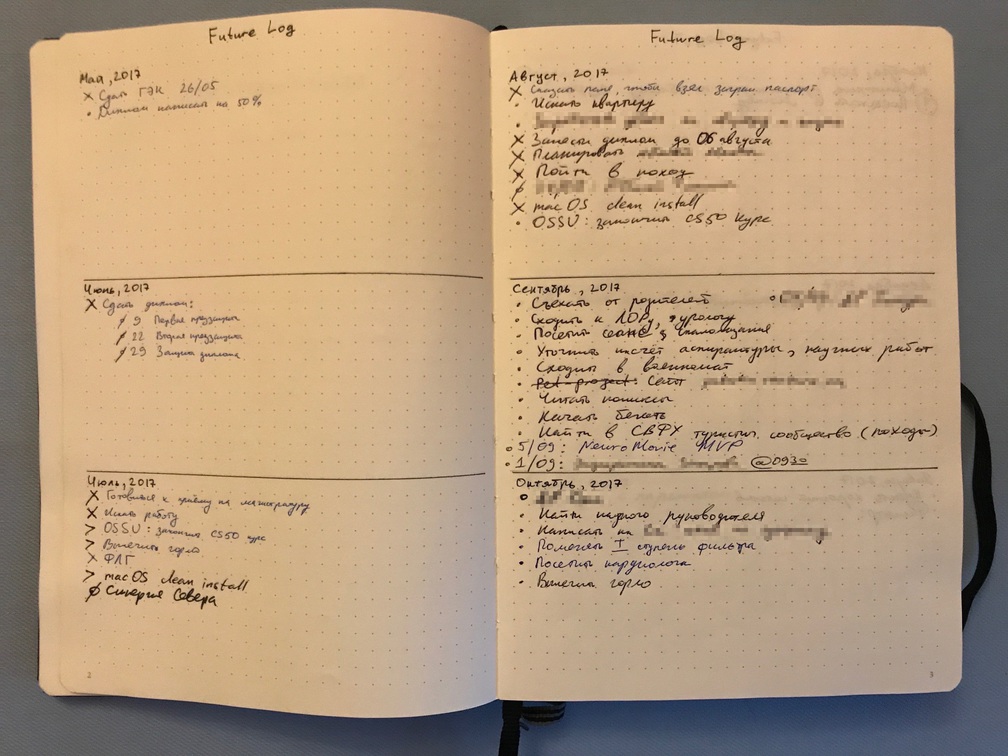 Future Log
Май, 2017
× Сдать ГЭК 26/05
• Диплом написать на 50%
Июнь, 2017
× Сдать диплом:
9 Первая предзащита
22 Вторая предзащита
29 Защита диплома
Июль, 2017
× Готовиться к приёму на магистратуру
× Искать работу
> OSSU: закончить CS50 курс
> Вылечить горло
× ФЛГ
> macOS clean install
Синергия Севера
2
Future Log
Август, 2017
× Сказать папе, чтобы взял загран паспорт
• Искать квартиру
× Занести диплом до 06 августа
× Планировать
× Пойти в поход
× macOS clean install
• OSSU: закончить CS50 курс
Сентябрь, 2017
• Съехать от родителей
• Сходить к ЛОРу, урологу
• Посетить сеанс
• Уточнить насчёт аспирантуры, научных работ
• Сходить в военкомат
• Pet-project: Сайт
• Читать комиксы
• Начать бегать
• Найти в СВФУ туристич. сообщество (походы)
5/09: NeuroMovie MVP
1/09: @0930
Октябрь, 2017
• Найти научного руководителя
• Написать на
• Поменять I ступень фильтра
• Посетить кардиолога
• Вылечить горло
3